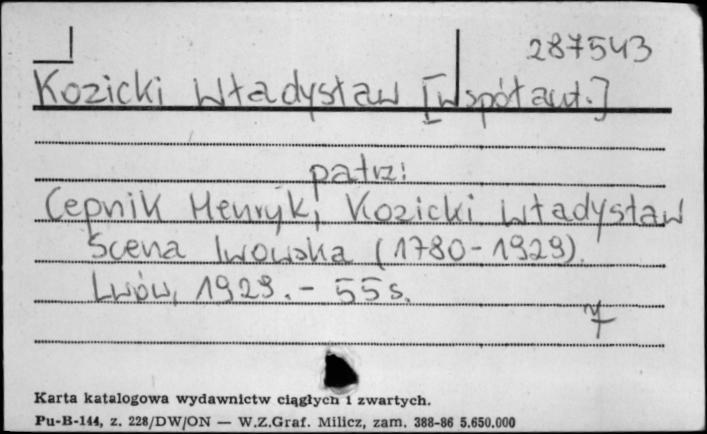 287543
Kozicki Władysław [Współaut.]
patrz:
Cepnik Henryk, Kozicki Władysław
Scena lwowska (1780-1929).
Lwów, 1929. - 55 s.
7
Karta katalogowa wydawnictw ciągłych i zwartych.
Pu-B-144, z. 228/DW/ON — W.Z.Graf. Milicz, zam. 388-86 5.650.000